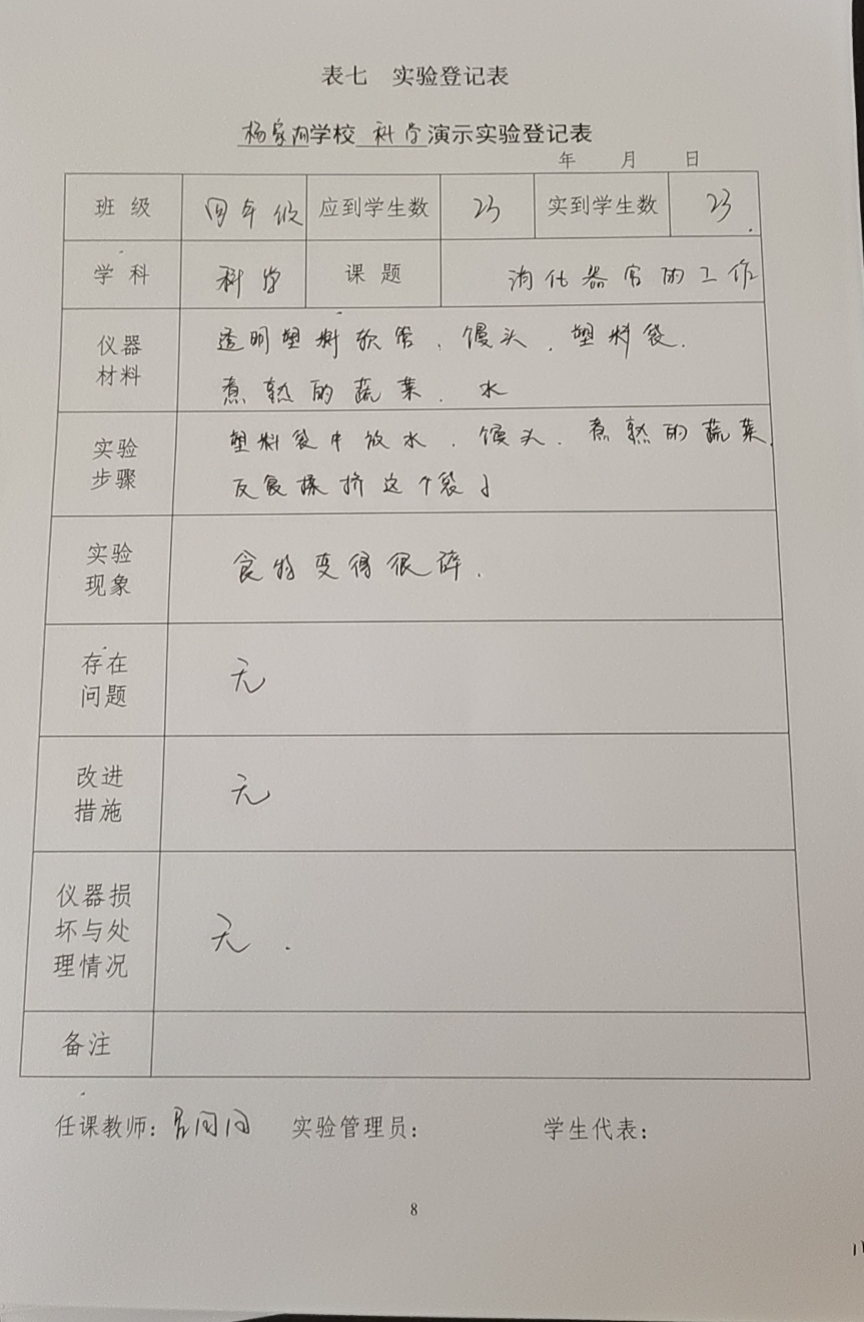 表七 实验登记表
杨家沟学校 科学 演示实验登记表
年 月 日
班 级 四年级 应到学生数 23 实到学生数 23
学 科 科学 课 题 消化器官的工作
仪器材料 透明塑料软管、馒头、塑料袋、
煮熟的蔬菜、水
实验步骤 塑料袋中放水、馒头、煮熟的蔬菜,
反复揉挤这个袋子
实验现象 食物变得很碎.
存在问题 无
改进措施 无
仪器损坏与处理情况 无.
备注
任课教师: 实验管理员: 学生代表:
8